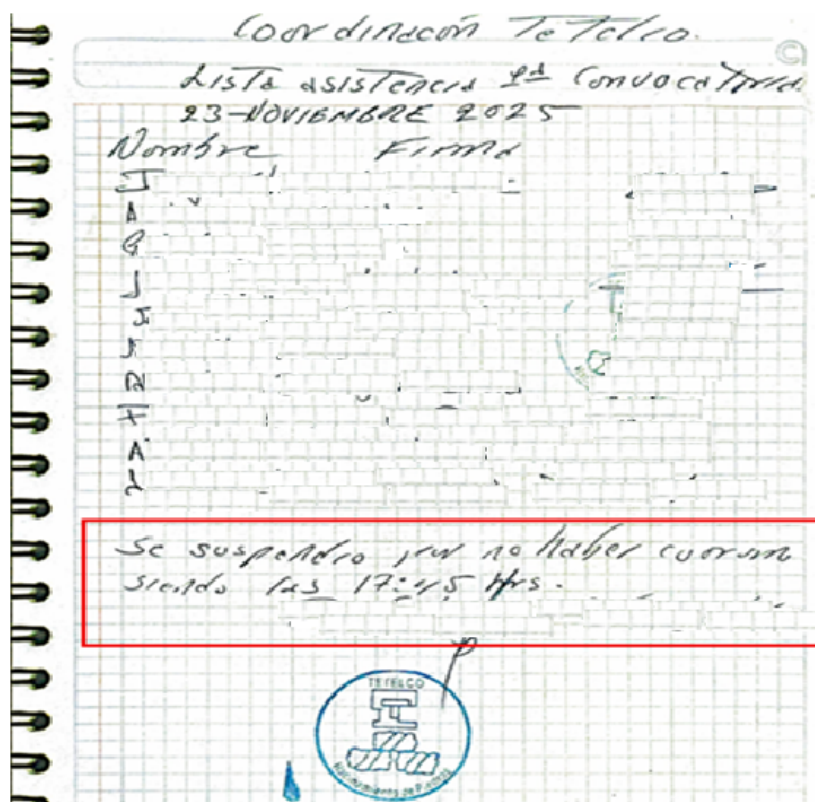 Coordinación Tetelco.
Lista asistencia 1ra Convocatoria
23-NOVIEMBRE 2025
Nombre Firma
I
A
G
J
J
J
R
F
A
L
Se suspendio por no haber cuorum
siendo las 17:45 Hrs.
TETELCO